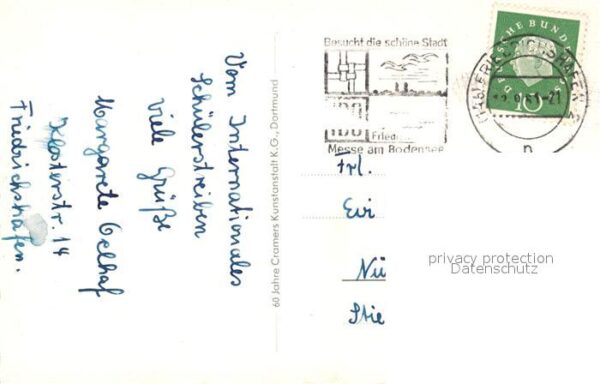 Vom Internationales
Schülerstreiben
viele Grüße
Margarete Oelhaf
Klosterstr. 14
Friedrichshafen.
60 Jahre Cramers Kunstanstalt K.G., Dortmund
Besucht die schöne Stadt
IBO
Fried
Messe am Bodensee
FRIEDRICHSHAFEN
SCHE BUND
10
Frl.
Evi
Nü
Stie
privacy protection
Datenschutz